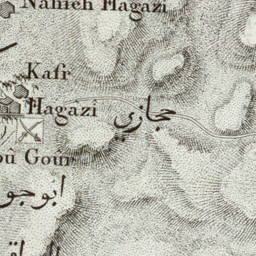 Nahieh Hagazi
Kafr
Hagazi حجازي
où Goûr
ابوجو